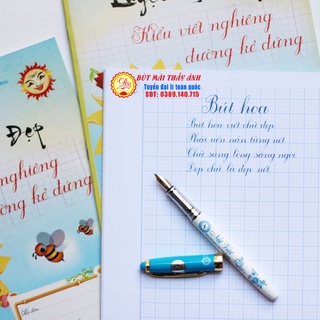 Kiểu viết nghiêng
đường kẻ đứng
BÚT MÀI THẦY ÁNH
Tuyển đại lí toàn quốc
SĐT: 0389.140.715
Đẹp
nghiêng
đường kẻ đứng
Bút hoa
Bút hoa viết chữ đẹp
Phải uốn nắn từng nét
Chữ sáng lòng sáng ngời
Đẹp chữ là đẹp nết